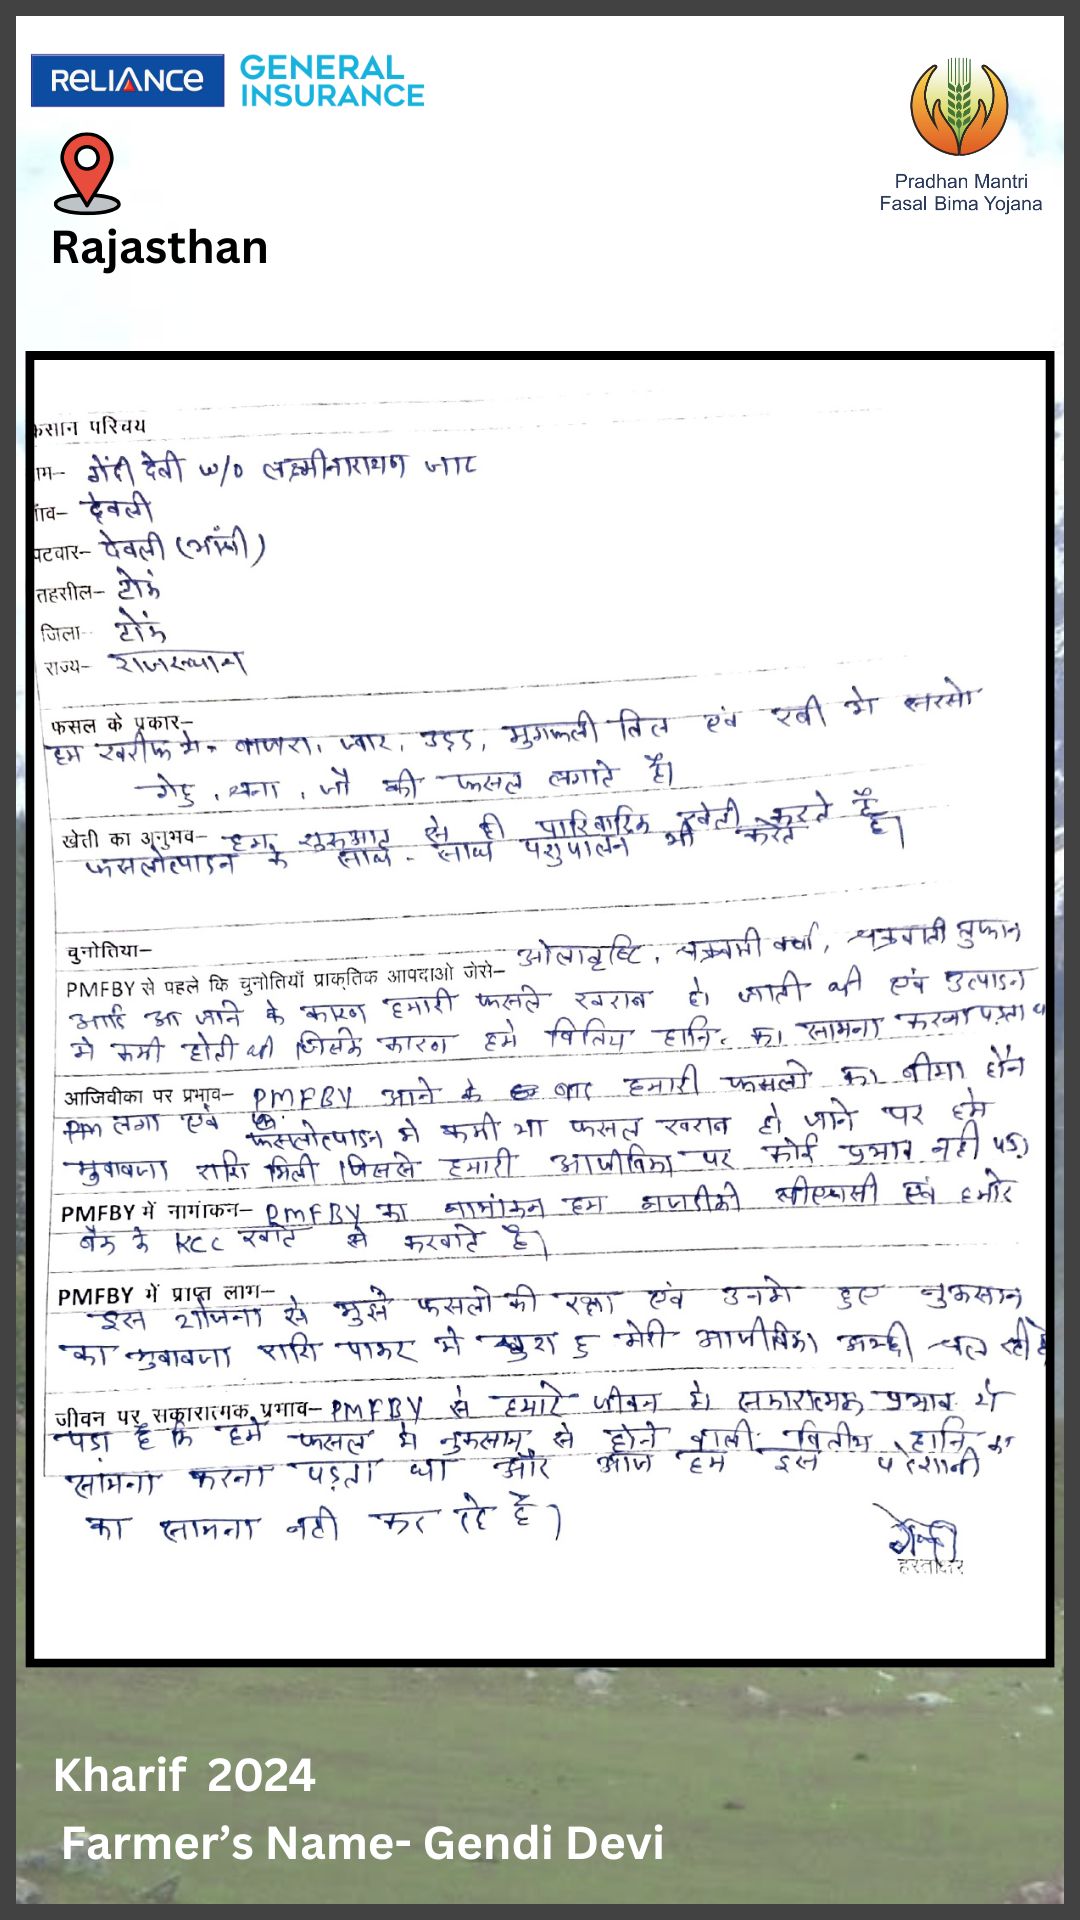 RELIANCE GENERAL INSURANCE
Pradhan Mantri
Fasal Bima Yojana
Rajasthan
कसान परिचय
ाम– गेंदी देवी w/o लक्ष्मीनारायण जाट
ाँव– देवली
पटवार– देवली (भाँची)
तहसील– टोंक
जिला– टोंक
राज्य– राजस्थान
फसल के प्रकार–
हम खरीफ मे- बाजरा, ज्वार, उडद, मुगफली तिल एवं रबी मे सरसो
गेहु, चना, जौ की फसल लगाते है।
खेती का अनुभव– हम शुरुआत से ही पारिवारिक खेती करते है
फसलोत्पादन के साथ-साथ पशुपालन भी करते है।
चुनोतिया–
PMFBY से पहले कि चुनोतियाँ प्राकृतिक आपदाओ जेसे– ओलावृष्टि, चक्रवाती वर्षा, चक्रवाती तुफान
आदि आ जाने के कारण हमारी फसले खराब हो जाती थी एवं उत्पादन
मे कमी होती थी जिसके कारण हमे वितिय हानि का सामना करना पड़ता था
आजिवीका पर प्रभाव– PMFBY आने के बाद हमारी फसलो का बीमा होने
लगा एवं फसलोत्पादन मे कमी या फसल खराब हो जाने पर हमे
मुवावजा राशि मिली जिससे हमारी आजीविका पर कोई प्रभाव नही पड़ा
PMFBY में नामांकन– PMFBY का नामांकन हम नजदीकी सीएससी एवं हमारे
बैंक के KCC खाते से करवाते है।
PMFBY में प्राप्त लाभ–
इस योजना से मुझे फसलो की रक्षा एवं उनमे हुए नुकसान
का मुवावजा राशि पाकर मे खुश हु मेरी आजीविका अच्छी चल रही है
जीवन पर सकारात्मक प्रभाव– PMFBY से हमारे जीवन मे सकारात्मक प्रभाव ये
पडा है कि हमे फसल मे नुकसान से होने वाली वितीय हानि का
सामना करना पड़ता था और आज हम इस परेशानी
का सामना नही कर रहे है।
गेन्दी
हस्ताक्षर
Kharif 2024
Farmer’s Name- Gendi Devi